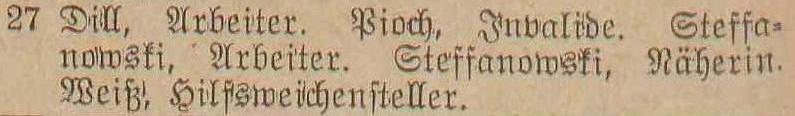 27 Dill, Arbeiter. Pioch, Invalide. Steffa-
nowski, Arbeiter. Steffanowski, Näherin.
Weiß, Hilfsweichensteller.